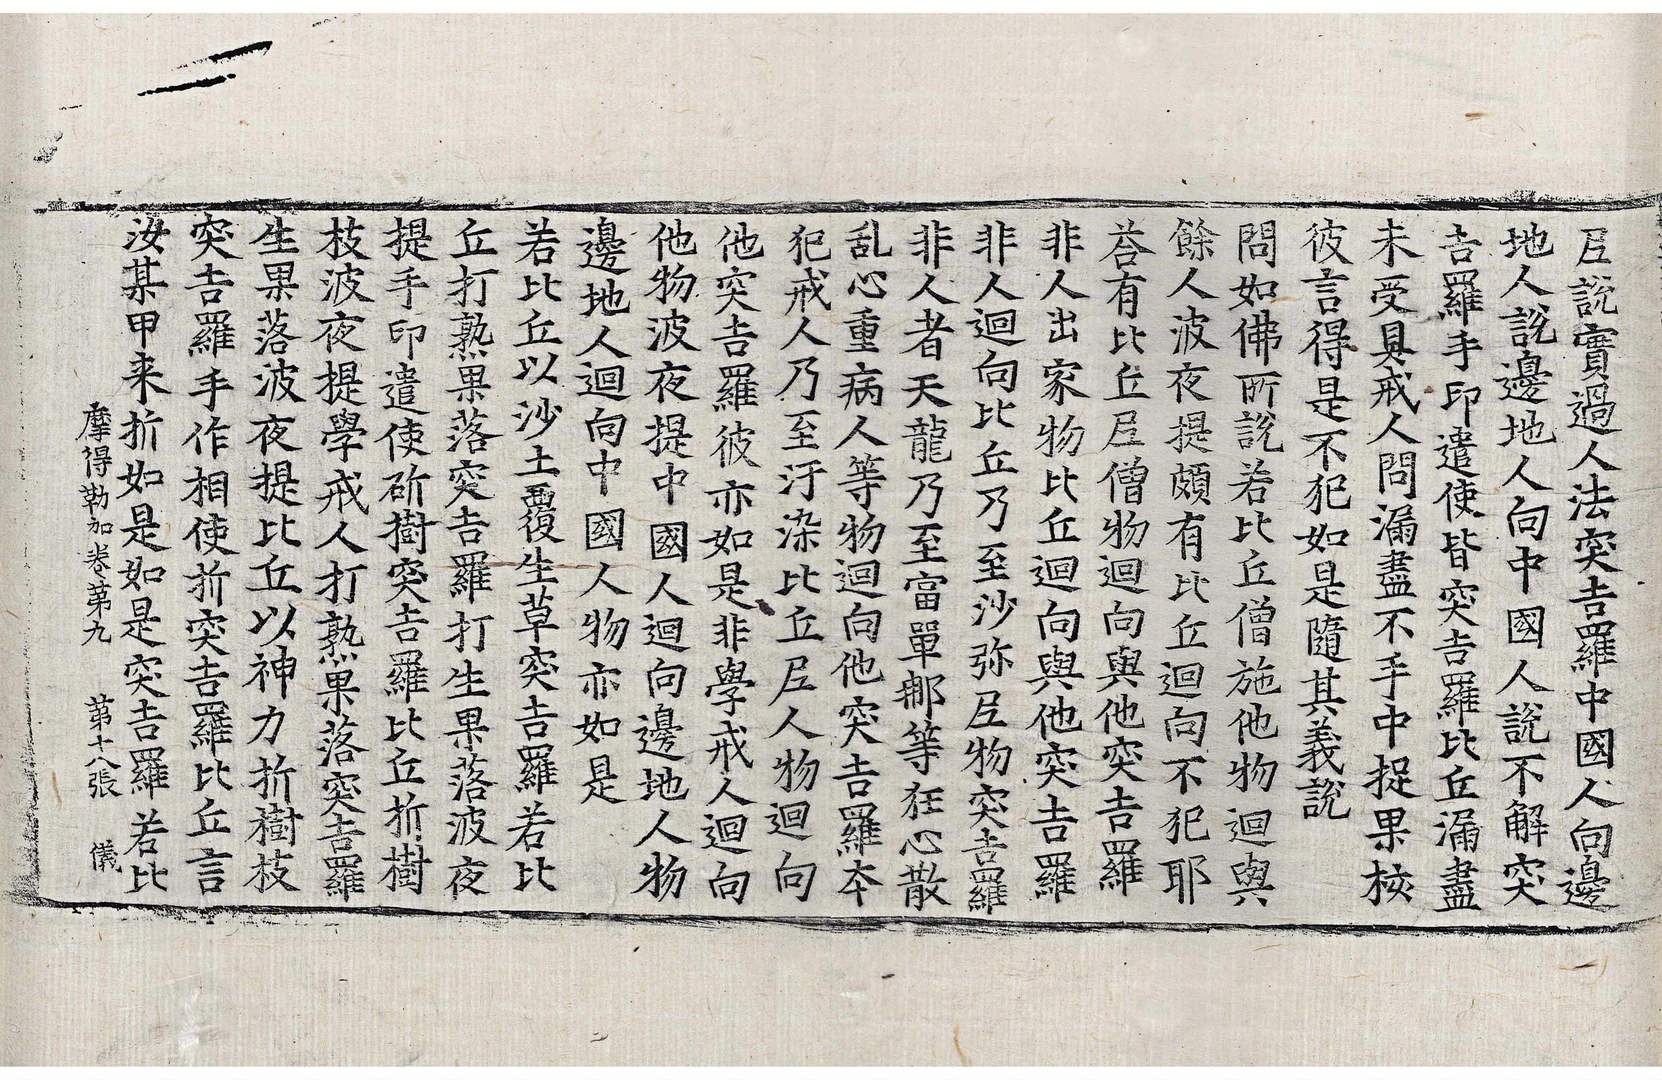 𡰱說實過人法突吉羅中國人向邊
地人說邊地人向中國人說不解突
吉羅手印遣使皆突吉羅比丘漏盡
未受具戒人問漏盡不手中捉果核
彼言得是不犯如是隨其義說
問如佛所說若比丘僧施他物迴與
餘人波夜提頗有比丘迴向不犯耶
荅有比丘𡰱僧物迴向與他突吉羅
非人出家物比丘迴向與他突吉羅
非人迴向比丘乃至沙弥𡰱物突吉羅
非人者天龍乃至富單那等狂心散
乱心重病人等物迴向他突吉羅本
犯戒人乃至汙染比丘𡰱人物迴向
他突吉羅彼亦如是非學戒人迴向
他物波夜提中國人迴向邊地人物
邊地人迴向中國人物亦如是
若比丘以沙土覆生草突吉羅若比
丘打熟果落突吉羅打生果落波夜
提手印遣使斫樹突吉羅比丘折樹
枝波夜提學戒人打熟果落突吉羅
生果落波夜提比丘以神力折樹枝
突吉羅手作相使折突吉羅比丘言
汝某甲来折如是如是突吉羅若比
摩得勒加卷第九 第十八張 儀